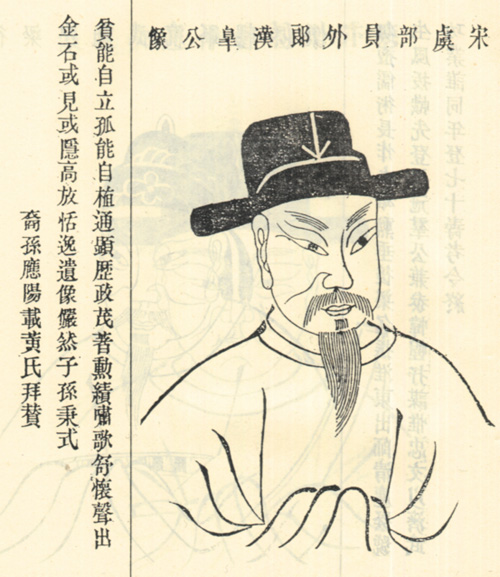 宋虞部員外郎漢皋公像
貧能自立孤能自植通顯歷政茂著勳績嘯歌舒懷聲出
金石或見或隱高放恬逸遺像儼然子孫秉式
裔孫應陽載黃氏拜贊